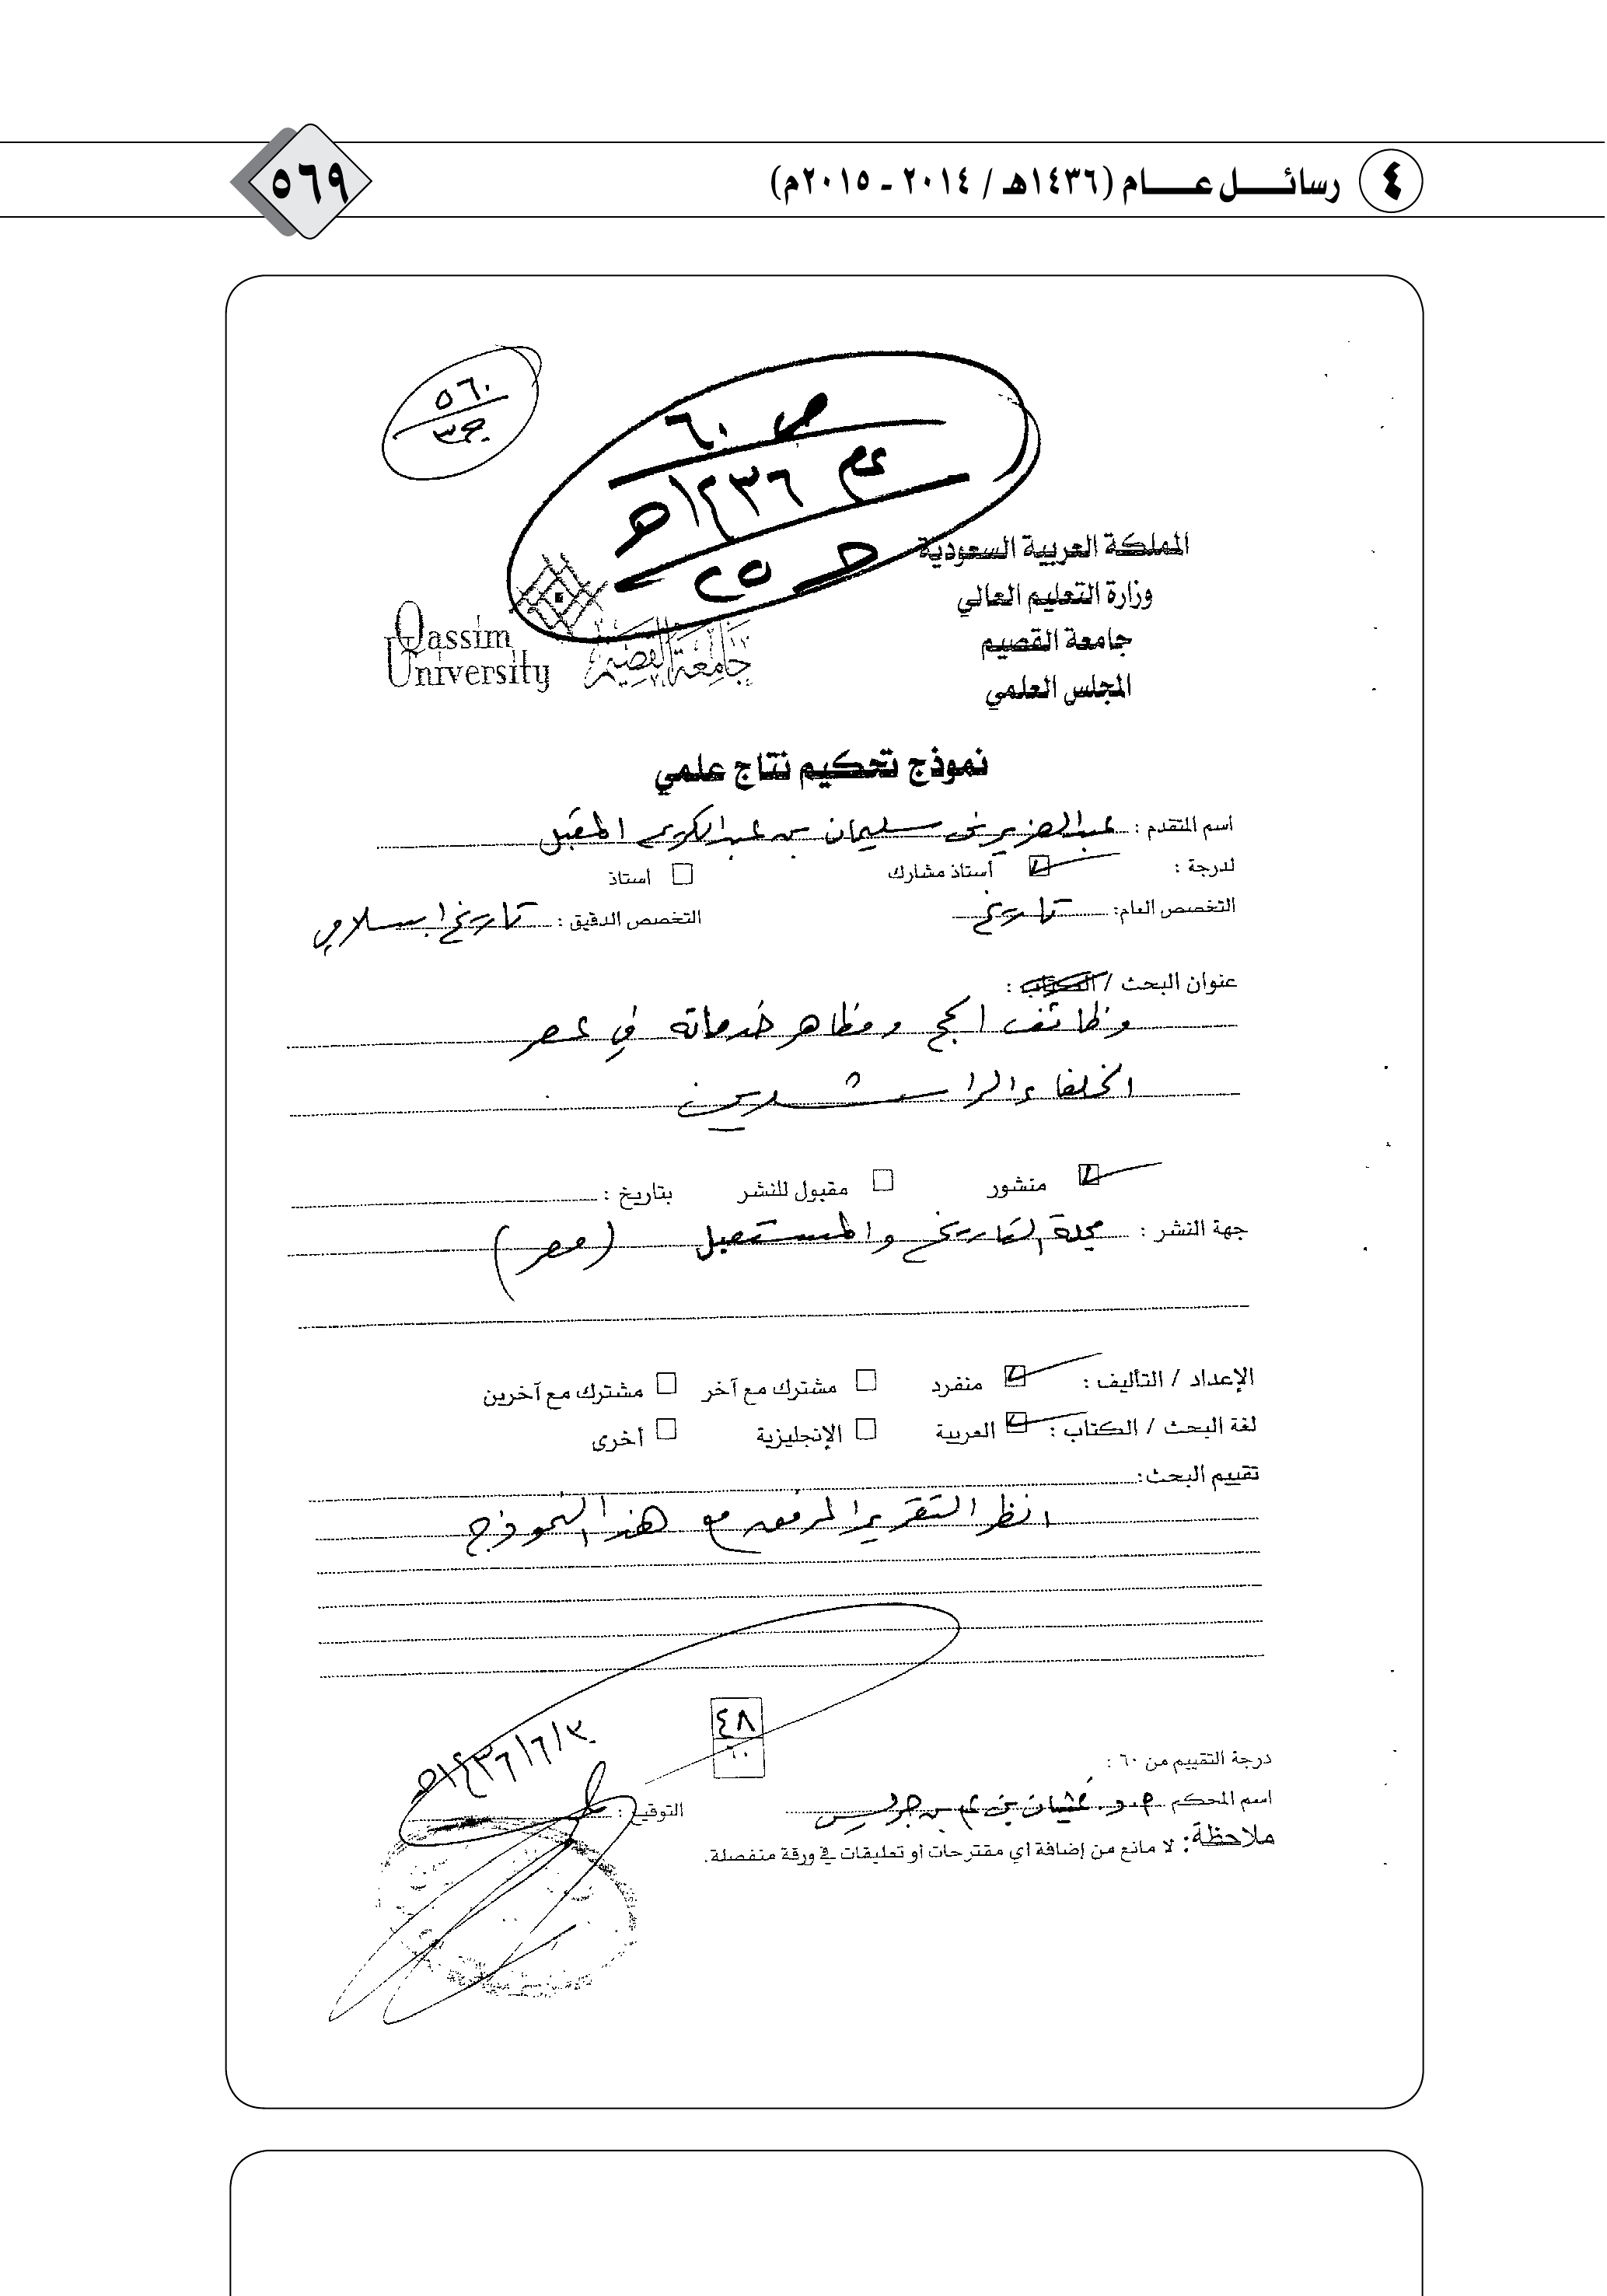 ٤ رسائــل عــــام (١٤٣٦هـ / ٢٠١٤ ـ ٢٠١٥م) ٥٦٩
٥٦٠
ج٣
ص ٦٠
عام ١٤٣٦هـ
حـ ٢٥
المملكة العربية السعودية
وزارة التعليم العالي
جامعة القصيم
المجلس العلمي
Qassim
University
جامعة القصيم
نموذج تحكيم نتاج علمي
اسم المتقدم : عبدالعزيز بن سليمان بن عبدالكريم المقبل
لدرجة : أستاذ مشارك أستاذ
التخصص العام: تاريخ التخصص الدقيق : تاريخ إسلامي
عنوان البحث / الكتاب :
وظائف الحج ومظاهر خدماته في عصر
الخلفاء الراشدين
منشور مقبول للنشر بتاريخ :
جهة النشر : مجلة التاريخ والمستقبل (مصر)
الإعداد / التأليف : منفرد مشترك مع آخر مشترك مع آخرين
لغة البحث / الكتاب : العربية الإنجليزية أخرى
تقييم البحث:
انظر التقرير المرفق مع هذا النموذج
درجة التقييم من ٦٠ : ٤٨
٦٠
١٤٣٦/٦/٣هـ
اسم المحكم أ.د. غيثان بن علي بن جريس التوقيع :
ملاحظة: لا مانع من إضافة أي مقترحات أو تعليقات في ورقة منفصلة.